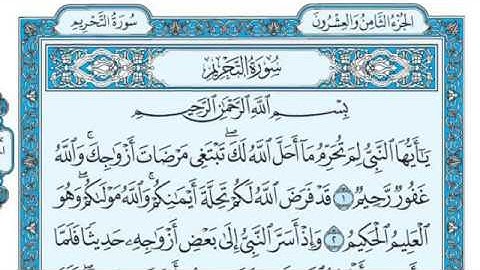 سُورَةُ التَّحْرِيمِ
الجُزْءُ الثَّامِنُ وَالعِشْرُونَ
سُورَةُ التَّحْرِيمِ
بِسْمِ اللَّهِ الرَّحْمَٰنِ الرَّحِيمِ
يَٰٓأَيُّهَا النَّبِىُّ لِمَ تُحَرِّمُ مَآ أَحَلَّ اللَّهُ لَكَ ۖ تَبْتَغِى مَرْضَاتَ أَزْوَٰجِكَ ۚ وَاللَّهُ
غَفُورٌ رَّحِيمٌ ١ قَدْ فَرَضَ اللَّهُ لَكُمْ تَحِلَّةَ أَيْمَٰنِكُمْ ۚ وَاللَّهُ مَوْلَىٰكُمْ ۖ وَهُوَ
الْعَلِيمُ الْحَكِيمُ ٢ وَإِذْ أَسَرَّ النَّبِىُّ إِلَىٰ بَعْضِ أَزْوَٰجِهِۦ حَدِيثًا فَلَمَّا